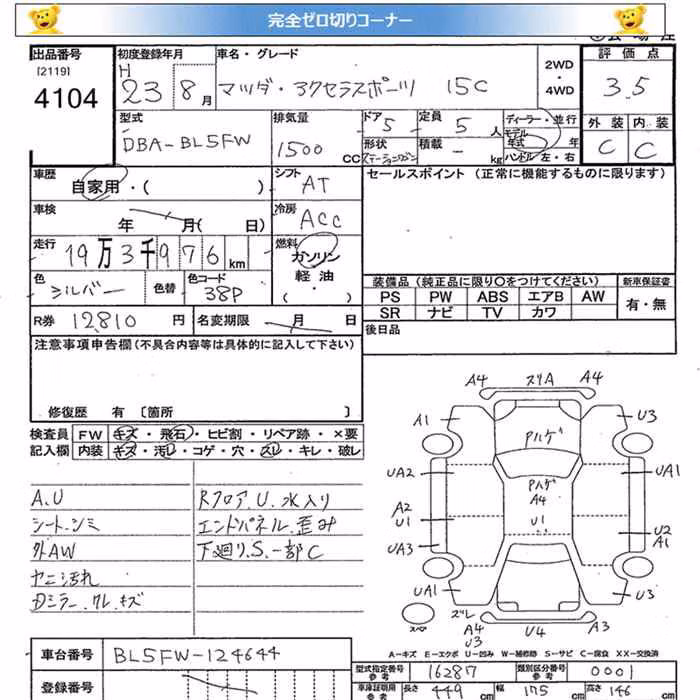 完全ゼロ切りコーナー
出品番号 [2119] 4104
初度登録年月 H 23 8月
車名・グレード マツダ・アクセラスポーツ 15C
2WD・4WD
評価点 3.5
外装 C 内装 C
型式 DBA-BL5FW
排気量 1500 CC
ドア 5 定員 5 人
形状 ステーションワゴン 積載 - kg
ディーラー・並行
モデル年式 年
ハンドル 左・右
車歴 自家用・( )
シフト AT
セールスポイント (正常に機能するものに限ります)
車検 年 月( 日)
冷房 ACC
走行 19万3千976km
燃料 ガソリン 軽油・
色 シルバー 色替 色コード 38P
装備品 (純正品に限り○をつけてください) 新車保証書
PS PW ABS エアB AW 有・無
SR ナビ TV カワ
R券 12810 円 名変期限 月 日
後日品
注意事項申告欄 (不具合内容等は具体的に記入して下さい)
修復歴 有 〔箇所 〕
検査員 FW キズ・飛石・ヒビ割・リペア跡・×要
記入欄 内装 キズ・汚レ・コゲ・穴・スレ・キレ・破レ
A.U
シート.シミ
外AW
ヤニ汚れ
Dミラー.クレ.キズ
Rフロア.U.水入り
エンドパネル.歪み
下廻り.S.一部C
A4 スリA A4
A1 U3
Pハゲ
UA2 UA1
Pハゲ
A4
A2 U1
U1
U2 A1
UA3
UA1 U3
スペア
ズレ A4 U3
U4 A3
A-キズ E-エクボ U-凹み W-補修跡 S-サビ C-腐食 XX-交換済
車台番号 BL5FW-124644
登録番号
型式指定番号 参考 16287 類別区分番号 参考 0001
車庫証明用 参考 長さ 449 cm 幅 175 cm 高さ 146 cm